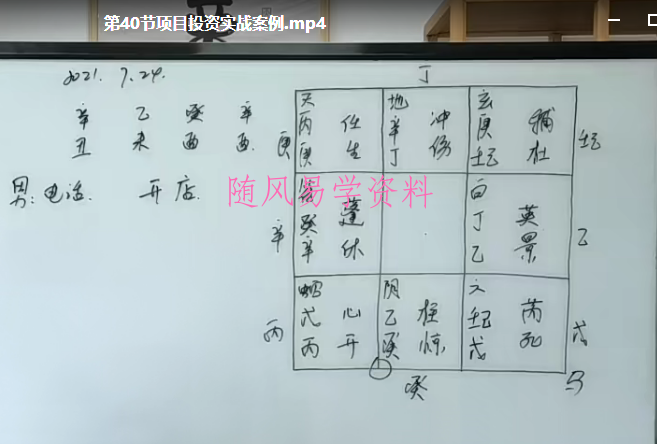 第40节项目投资实战案例.mp4
2021. 7.24.
丁
辛 乙 癸 辛
丑 未 酉 酉
男:电话. 开店.
随风易学资料
天 任
丙 生
庚
地 冲
辛 伤
丁
玄 辅
庚 杜
壬己
庚
壬己
蓬
癸 休
辛
辛
白 英
丁 景
乙
乙
蛇 心
戊 开
丙
丙
阴 柱
乙 惊
癸
六 芮
壬己 死
戊
戊
癸
马